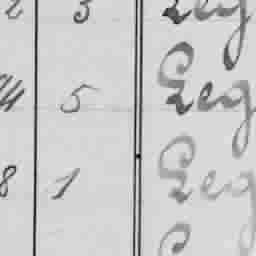 2 3 Leg
14 5 Leg
8 1 Leg